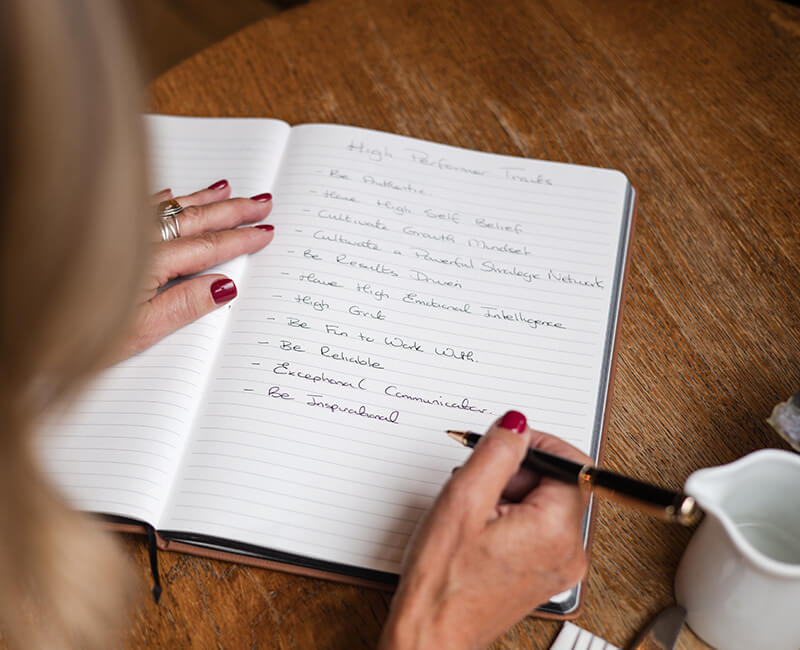 High Performer Traits
- Be Authentic.
- Have High Self Belief
- Cultivate Growth Mindset
- Cultivate a Powerful Strategic Network
- Be Results Driven
- Have High Emotional Intelligence
- High Grit
- Be Fun to Work With.
- Be Reliable
- Exceptional Communicator..
- Be Inspirational